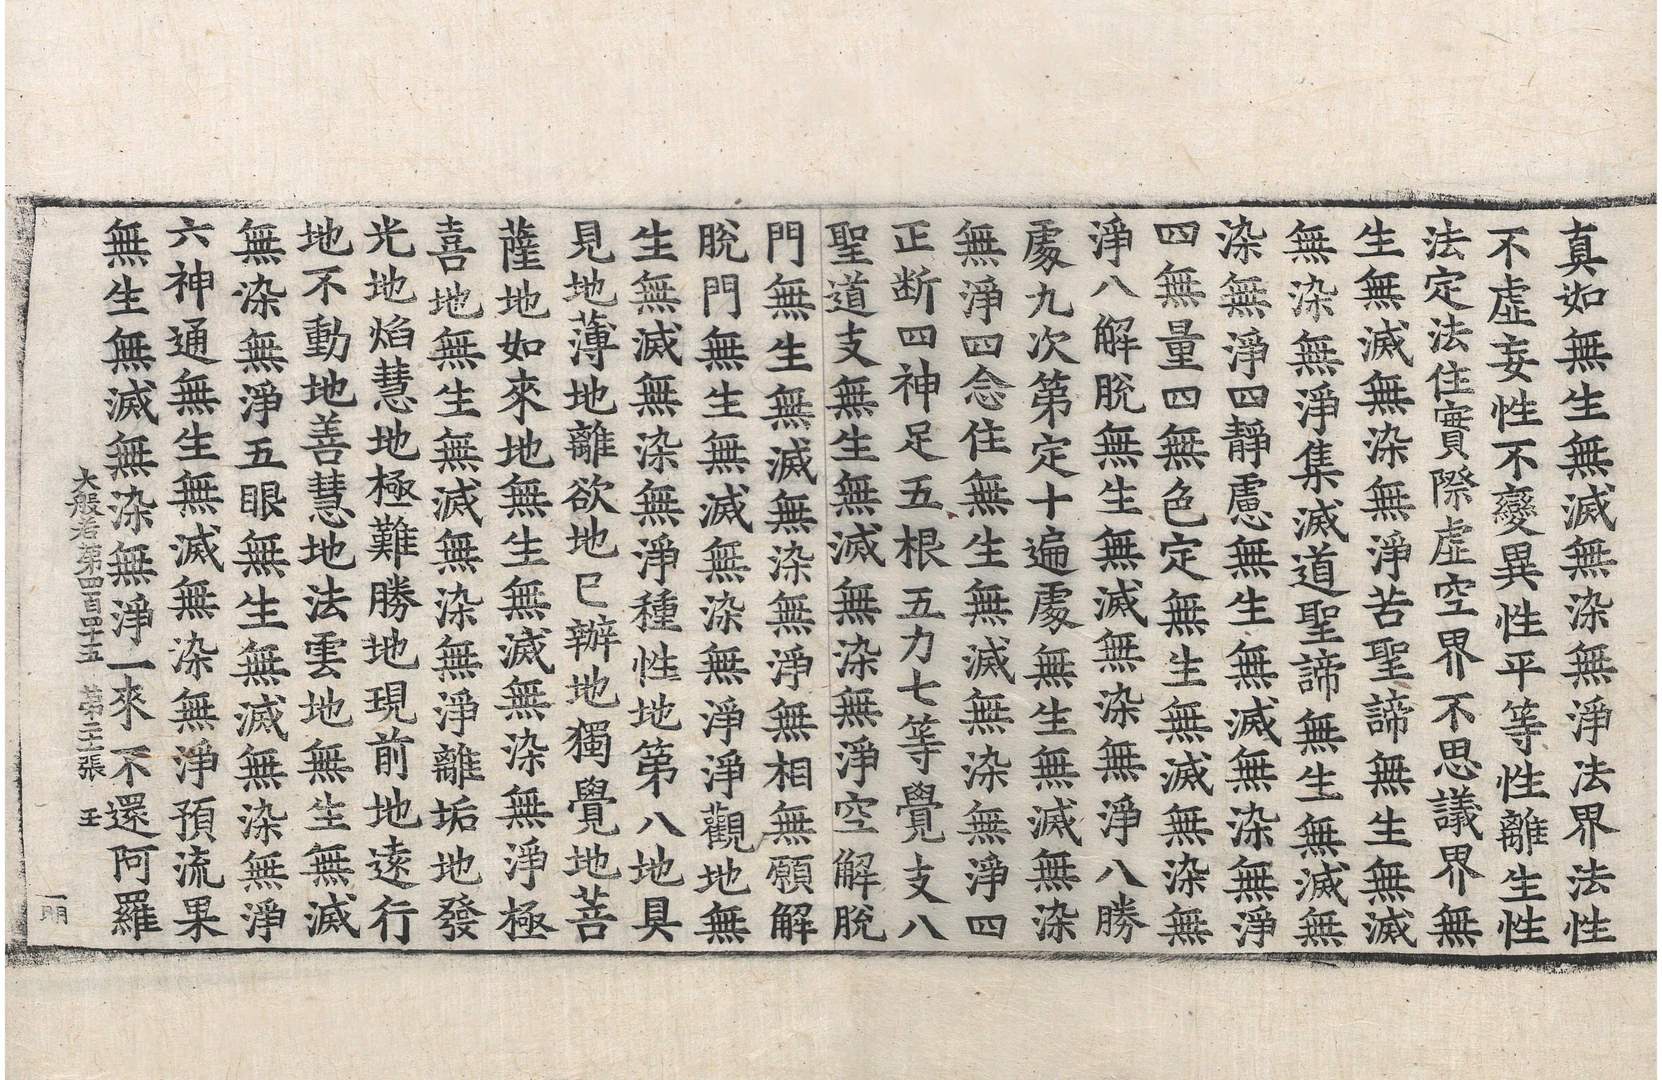 真如無生無滅無染無淨法界法性
不虛妄性不變異性平等性離生性
法定法住實際虛空界不思議界無
生無滅無染無淨苦聖諦無生無滅
無染無淨集滅道聖諦無生無滅無
染無淨四靜慮無生無滅無染無淨
四無量四無色定無生無滅無染無
淨八解脫無生無滅無染無淨八勝
處九次第定十遍處無生無滅無染
無淨四念住無生無滅無染無淨四
正断四神足五根五力七等覺支八
聖道支無生無滅無染無淨空解脫
門無生無滅無染無淨無相無願解
脫門無生無滅無染無淨淨觀地無
生無滅無染無淨種性地第八地具
見地薄地離欲地已辦地獨覺地菩
薩地如來地無生無滅無染無淨極
喜地無生無滅無染無淨離垢地發
光地焰慧地極難勝地現前地遠行
地不動地善慧地法雲地無生無滅
無染無淨五眼無生無滅無染無淨
六神通無生無滅無染無淨預流果
無生無滅無染無淨一來不還阿羅
大般若第四百四十五 第張
一明